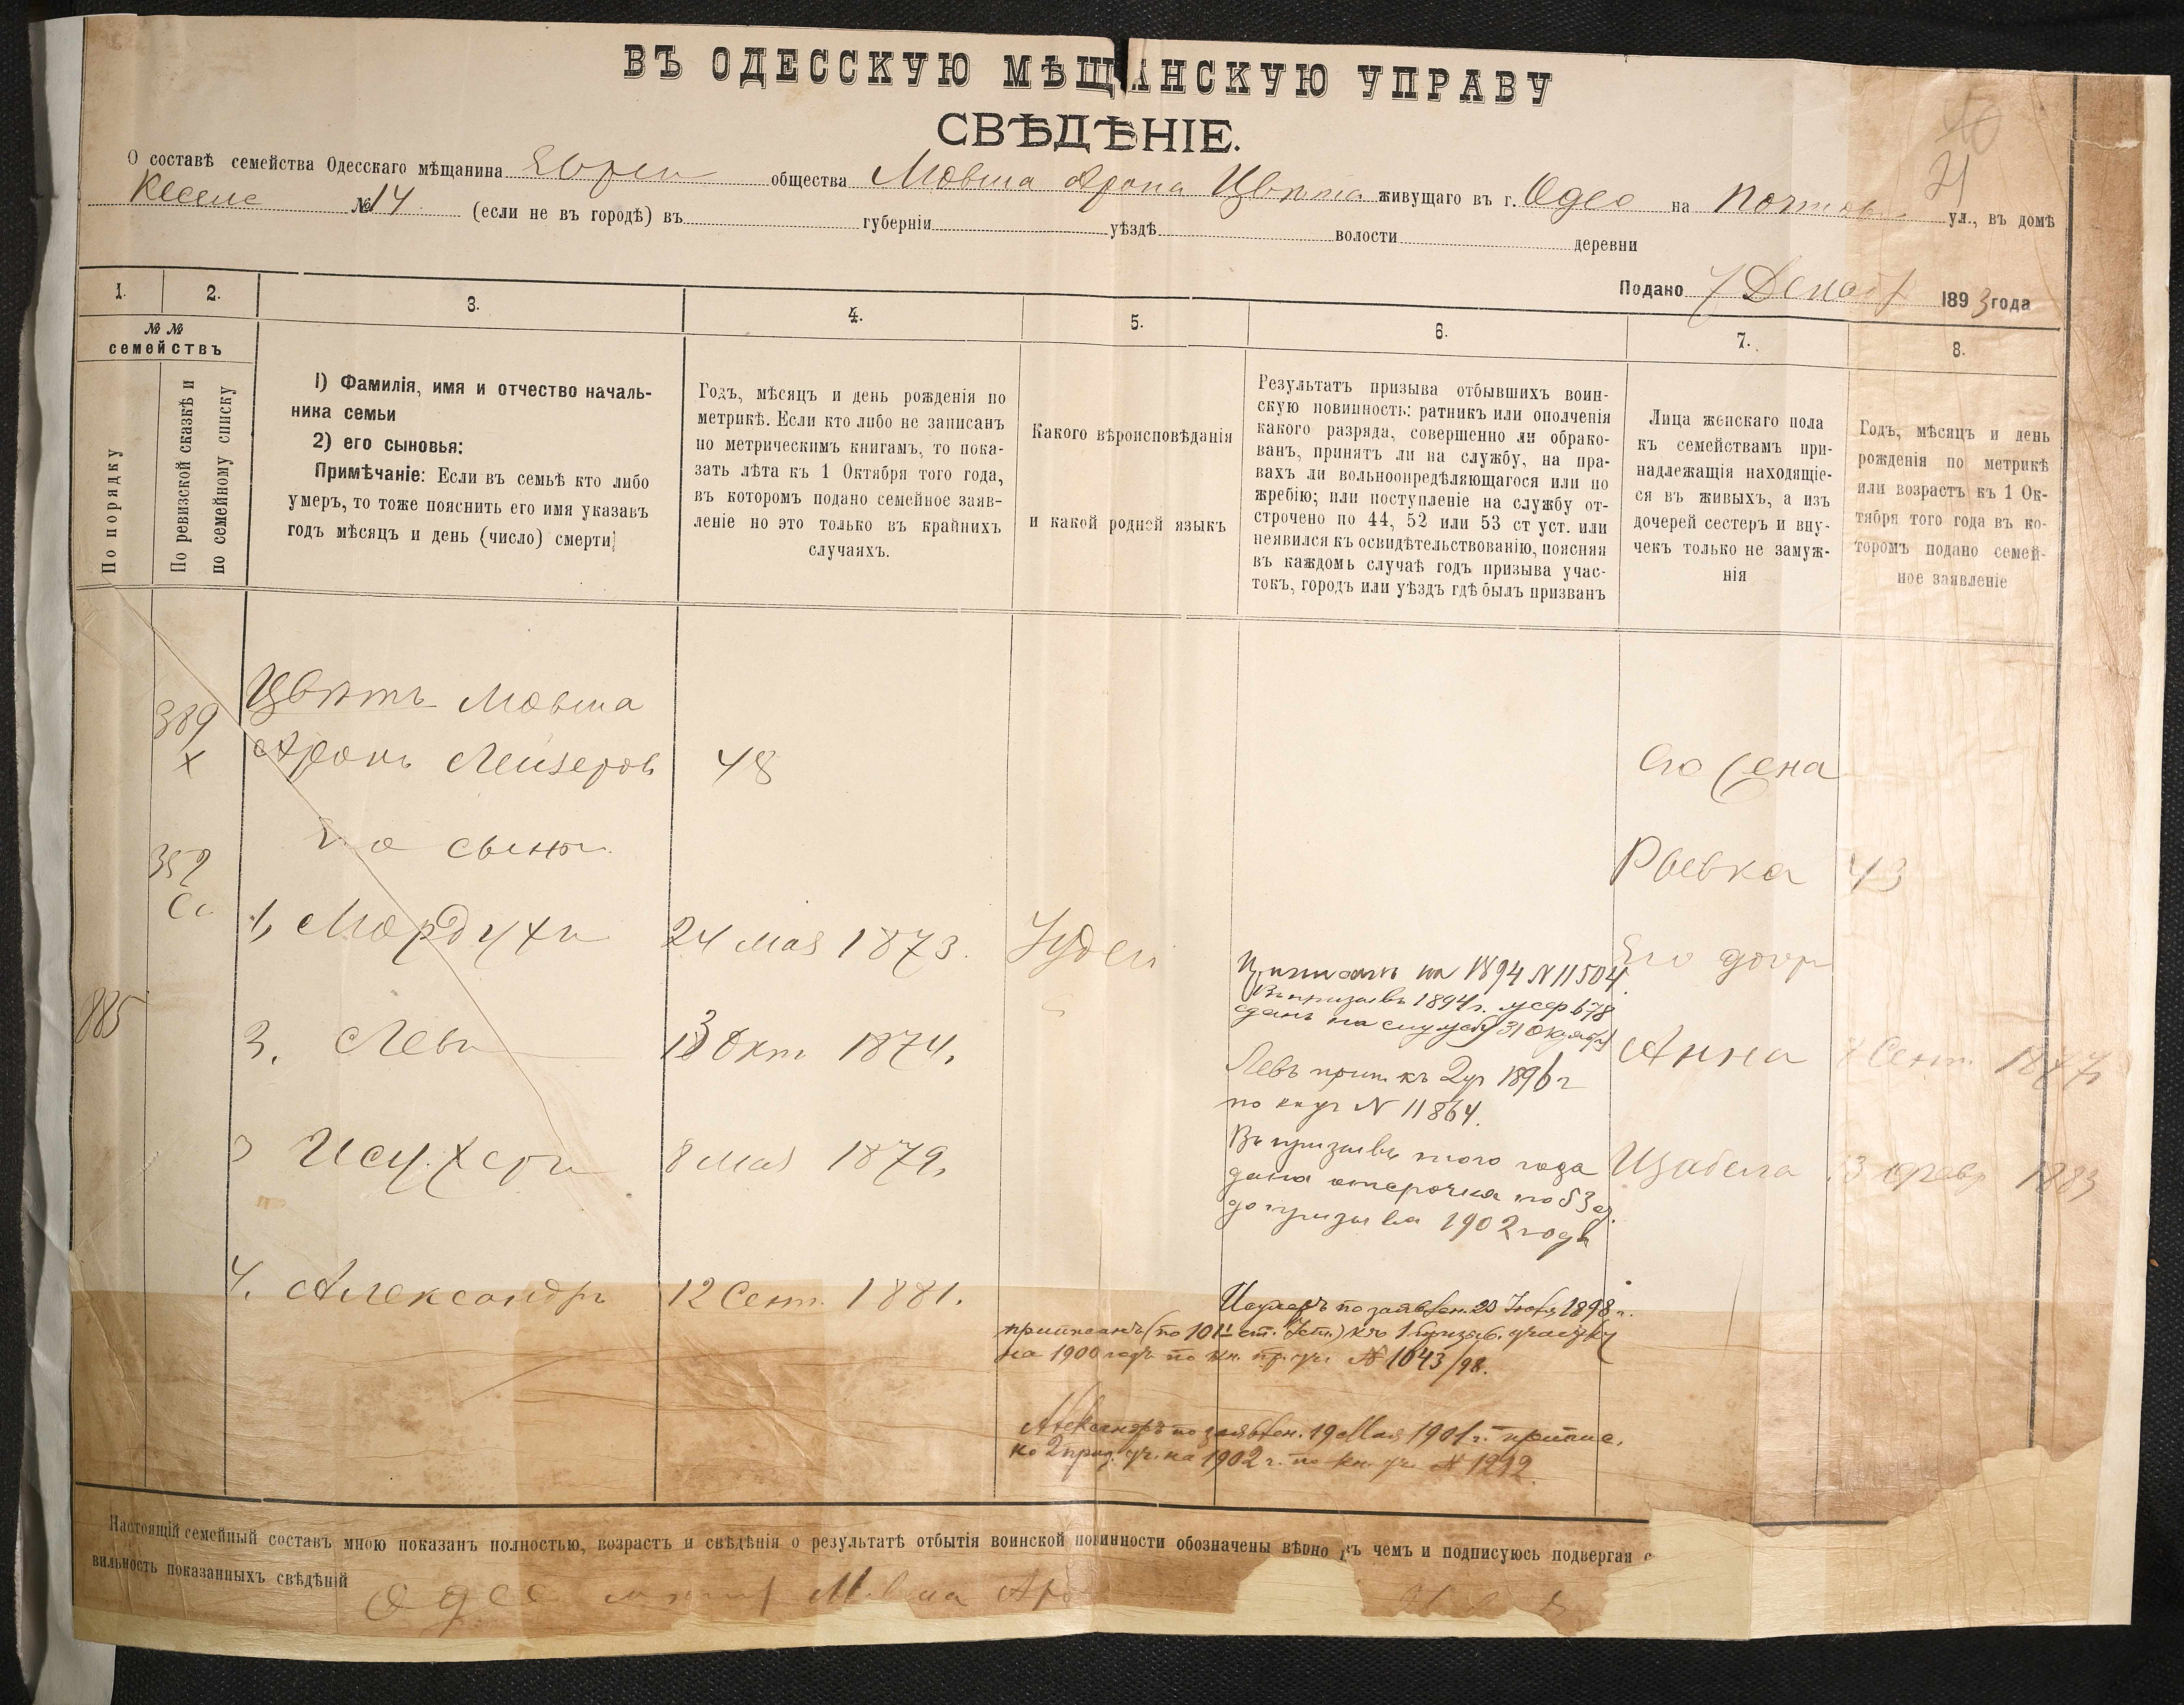 ВЪ ОДЕССКУЮ МѢЩАНСКУЮ УПРАВУ
СВѢДѢНІЕ.
О составѣ семейства Одесскаго мѣщанина Евреи общества Мовша Арона Цвѣта живущаго въ г. Одес на Почтов ул., въ домѣ
№ 14 (если не въ городѣ) въ губерніи уѣздѣ волости деревни
Подано 7 Декабр 1893 года
1.
2.
3.
4.
5.
6.
7.
8.
№ №
семействъ
По порядку
По ревизской сказкѣ и
по семейному списку
1) Фамилія, имя и отчество началь-
ника семьи
2) его сыновья:
Примѣчаніе: Если въ семьѣ кто либо
умеръ, то тоже пояснить его имя указавъ
годъ мѣсяцъ и день (число) смерти;
Годъ, мѣсяцъ и день рожденія по
метрикѣ. Если кто либо не записанъ
по метрическимъ книгамъ, то пока-
зать лѣта къ 1 Октября того года,
въ которомъ подано семейное заяв-
леніе но это только въ крайнихъ
случаяхъ.
Какого вѣроисповѣданія
и какой родней языкъ
Результатъ призыва отбывшихъ воин-
скую повинность: ратникъ или ополченія
какого разряда, совершенно ли обрако-
ванъ, принятъ ли на службу, на пра-
вахъ ли вольноопредѣляющагося или по
жребію; или поступленіе на службу от-
строчено по 44, 52 или 53 ст уст. или
неявился къ освидѣтельствованію, поясняя
въ каждомъ случаѣ годъ призыва учас-
токъ, городъ или уѣздъ гдѣ былъ призванъ
Лица женскаго пола
къ семействамъ при-
надлежащія находящіе-
ся въ живыхъ, а изъ
дочерей сестеръ и вну-
чекъ только не замуж-
нія
Годъ, мѣсяцъ и день
рожденія по метрикѣ
или возрастъ къ 1 Ок-
тября того года въ ко-
торомъ подано семей-
ное заявленіе
389
х
Цвѣтъ Мовша
Аронъ Лейзеров 48
Его сыновя
352
1, Мордухъ 24 мая 1873. Іудей
885
3. Левъ 13 Окт 1874.
3 Исухеръ 8 мая 1879.
4. Александръ 12 Сент. 1881.
Приписанъ на 1894 N 11504
Въ призывъ 1894 г. 678
сданъ на службу 31 Октября
Левъ прип. къ 2 уч 1896 г
по кн уч N 11864.
Въ призывъ того года
дана отсрочка по 53 ст.
до призыва 1902 года
Исухеръ по заявлен. 23 1898 г.
приписанъ (по 101 ст. Уст.) къ 1 призыв. участку
на 1900 годъ по кн. пр. уч. № 1043/98.
Александръ по заявлен. 19 Мая 1901 г. припис.
ко 2 приз. уч. на 1902 г. по кн. уч. № 1212.
Его жена
Ривка 43
Его дочр
Анна 8 Сент. 1877
Изабела 3 февр 1883
Настоящій семейный составъ мною показанъ полностью, возрастъ и свѣдѣнія о результатѣ отбытія воинской повинности обозначены вѣрно въ чемъ и подписуюсь подвергая с
вильность показанныхъ свѣдѣній
Одес Мовша Аро